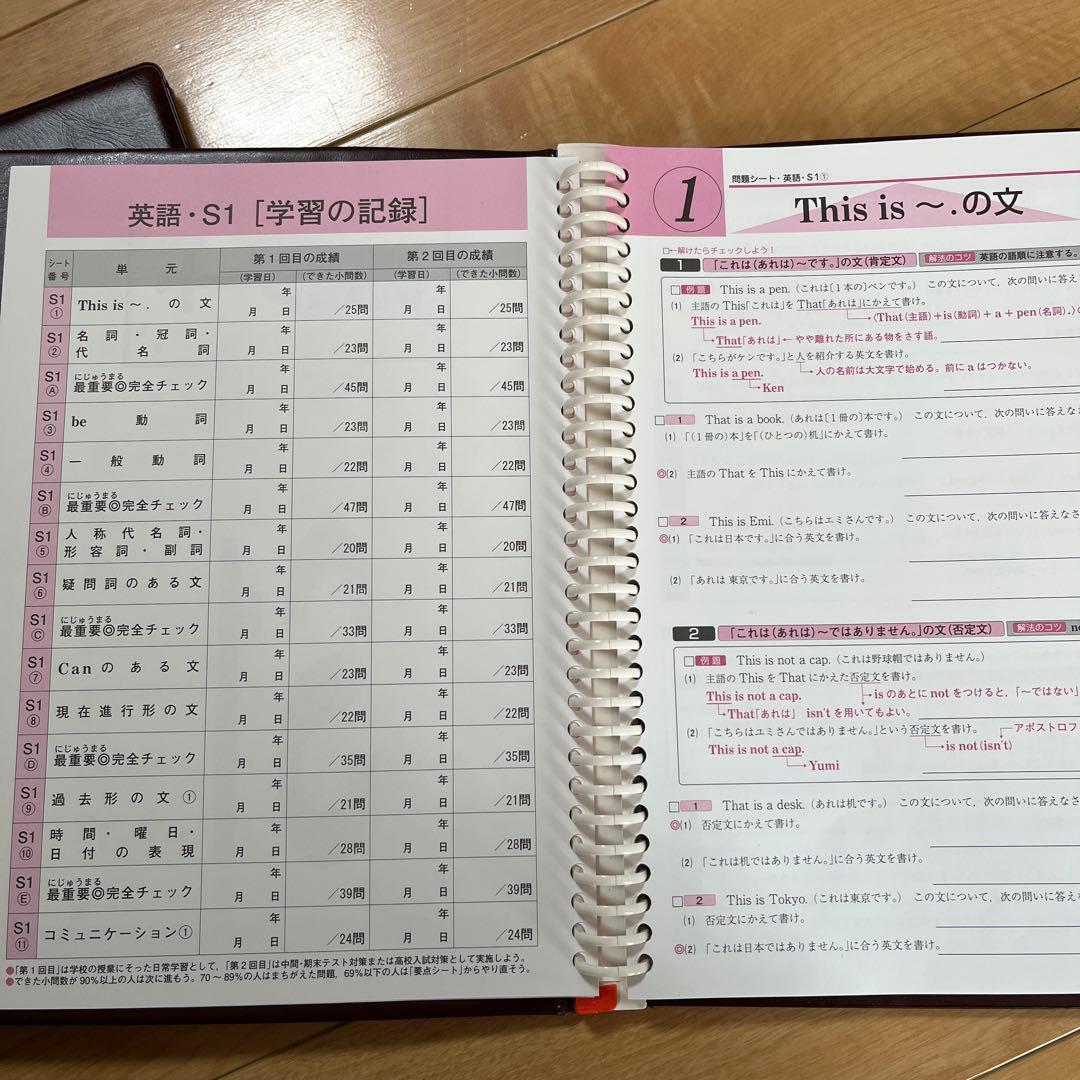 英語・S1［学習の記録］
シート番号 単元 第1回目の成績 第2回目の成績
（学習日） （できた小問数） （学習日） （できた小問数）
S1① This is ～．の文 年 月 日 ／25問 年 月 日 ／25問
S1② 名詞・冠詞・代名詞 年 月 日 ／23問 年 月 日 ／23問
S1Ⓐ 最重要◎完全チェック にじゅうまる 年 月 日 ／45問 年 月 日 ／45問
S1③ be動詞 年 月 日 ／23問 年 月 日 ／23問
S1④ 一般動詞 年 月 日 ／22問 年 月 日 ／22問
S1Ⓑ 最重要◎完全チェック にじゅうまる 年 月 日 ／47問 年 月 日 ／47問
S1⑤ 人称代名詞・形容詞・副詞 年 月 日 ／20問 年 月 日 ／20問
S1⑥ 疑問詞のある文 年 月 日 ／21問 年 月 日 ／21問
S1Ⓒ 最重要◎完全チェック にじゅうまる 年 月 日 ／33問 年 月 日 ／33問
S1⑦ Canのある文 年 月 日 ／23問 年 月 日 ／23問
S1⑧ 現在進行形の文 年 月 日 ／22問 年 月 日 ／22問
S1Ⓓ 最重要◎完全チェック にじゅうまる 年 月 日 ／35問 年 月 日 ／35問
S1⑨ 過去形の文① 年 月 日 ／21問 年 月 日 ／21問
S1⑩ 時間・曜日・日付の表現 年 月 日 ／28問 年 月 日 ／28問
S1Ⓔ 最重要◎完全チェック にじゅうまる 年 月 日 ／39問 年 月 日 ／39問
S1⑪ コミュニケーション① 年 月 日 ／24問 年 月 日 ／24問
●「第1回目」は学校の授業にそった日常学習として，「第2回目」は中間・期末テスト対策または高校入試対策として実施しよう。
●できた小問数が90％以上の人は次に進もう。70～89％の人はまちがえた問題，69％以下の人は「要点シート」からやり直そう。
1
問題シート・英語・S1①
This is ～．の文
□←解けたらチェックしよう！
1 「これは(あれは)～です。」の文(肯定文) 解法のコツ 英語の語順に注意する。
□例題 This is a pen.（これは〔1本の〕ペンです。） この文について，次の問いに答え
(1) 主語のThis「これは」を That「あれは」にかえて書け。
This is a pen. →〈That(主語)＋is(動詞)＋a＋pen(名詞).〉の
→That「あれは」←やや離れた所にある物をさす語。
(2) 「こちらがケンです。」と人を紹介する英文を書け。
This is a pen. →人の名前は大文字で始める。前にaはつかない。
→Ken
□1 That is a book.（あれは〔1冊の〕本です。） この文について，次の問いに答えな
(1) 「(1冊の)本」を「(ひとつの)机」にかえて書け。
◎(2) 主語の That を This にかえて書け。
□2 This is Emi.（こちらはエミさんです。） この文について，次の問いに答えなさ
◎(1) 「これは日本です。」に合う英文を書け。
(2) 「あれは東京です。」に合う英文を書け。
2 「これは(あれは)～ではありません。」の文(否定文) 解法のコツ
□例題 This is not a cap.（これは野球帽ではありません。）
(1) 主語の This を That にかえた否定文を書け。
This is not a cap. →isのあとにnotをつけると，「～ではない」
→That「あれは」 isn'tを用いてもよい。
(2) 「こちらはユミさんではありません。」という否定文を書け。 アポストロフ
This is not a cap. →is not(isn't)
→Yumi
□1 That is a desk.（あれは机です。） この文について，次の問いに答えな
◎(1) 否定文にかえて書け。
(2) 「これは机ではありません。」に合う英文を書け。
□2 This is Tokyo.（これは東京です。） この文について，次の問いに答えな
(1) 否定文にかえて書け。
◎(2) 「これは日本ではありません。」に合う英文を書け。